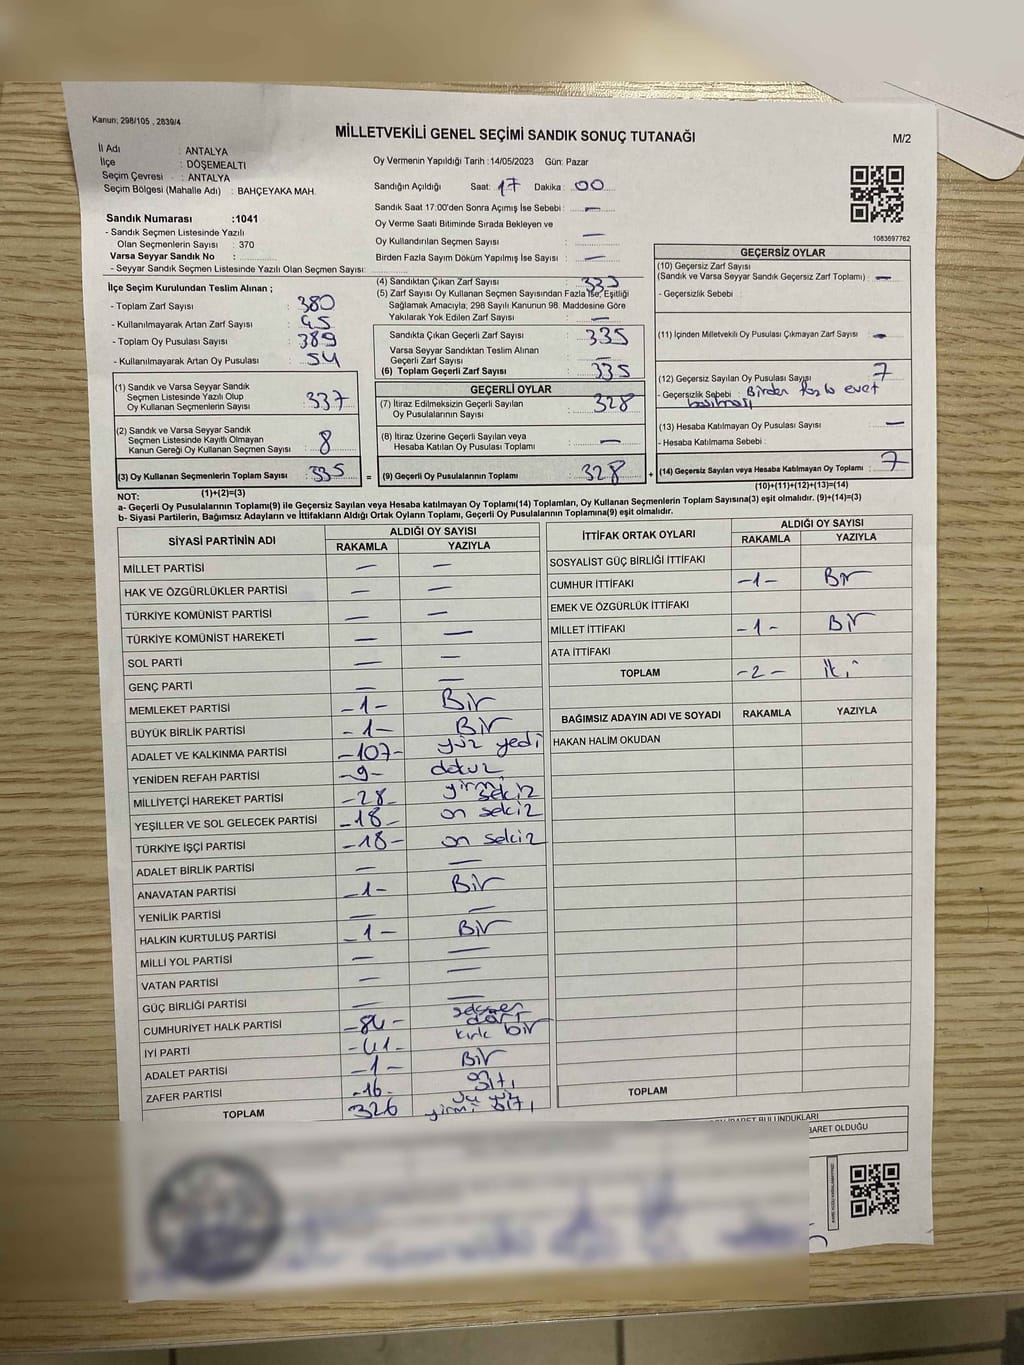 Kanun; 298/105 , 2839/4
MİLLETVEKİLİ GENEL SEÇİMİ SANDIK SONUÇ TUTANAĞI
M/2
İl Adı : ANTALYA
İlçe : DÖŞEMEALTI
Seçim Çevresi : ANTALYA
Seçim Bölgesi (Mahalle Adı) : BAHÇEYAKA MAH.
Sandık Numarası :1041
- Sandık Seçmen Listesinde Yazılı
Olan Seçmenlerin Sayısı : 370
Varsa Seyyar Sandık No :
- Seyyar Sandık Seçmen Listesinde Yazılı Olan Seçmen Sayısı:
İlçe Seçim Kurulundan Teslim Alınan ;
- Toplam Zarf Sayısı : 380
- Kullanılmayarak Artan Zarf Sayısı : 45
- Toplam Oy Pusulası Sayısı : 389
- Kullanılmayarak Artan Oy Pusulası : 54
(1) Sandık ve Varsa Seyyar Sandık
Seçmen Listesinde Yazılı Olup
Oy Kullanan Seçmenlerin Sayısı : 337
(2) Sandık ve Varsa Seyyar Sandık
Seçmen Listesinde Kayıtlı Olmayan
Kanun Gereği Oy Kullanan Seçmen Sayısı : 8
(3) Oy Kullanan Seçmenlerin Toplam Sayısı : 335 =
(1)+(2)=(3)
Oy Vermenin Yapıldığı Tarih : 14/05/2023 Gün: Pazar
Sandığın Açıldığı Saat: 17 Dakika : 00
Sandık Saat 17:00'den Sonra Açımış İse Sebebi : —
Oy Verme Saati Bitiminde Sırada Bekleyen ve
Oy Kullandırılan Seçmen Sayısı : —
Birden Fazla Sayım Döküm Yapılmış İse Sayısı : —
(4) Sandıktan Çıkan Zarf Sayısı : 335
(5) Zarf Sayısı Oy Kullanan Seçmen Sayısından Fazla İse, Eşitliği
Sağlamak Amacıyla; 298 Sayılı Kanunun 98. Maddesine Göre
Yakılarak Yok Edilen Zarf Sayısı : —
Sandıkta Çıkan Geçerli Zarf Sayısı : 335
Varsa Seyyar Sandıktan Teslim Alınan
Geçerli Zarf Sayısı : —
(6) Toplam Geçerli Zarf Sayısı : 335
GEÇERLİ OYLAR
(7) İtiraz Edilmeksizin Geçerli Sayılan
Oy Pusulalarının Sayısı : 328
(8) İtiraz Üzerine Geçerli Sayılan veya
Hesaba Katılan Oy Pusulası Toplamı : —
(9) Geçerli Oy Pusulalarının Toplamı : 328 +
1083697762
GEÇERSİZ OYLAR
(10) Geçersiz Zarf Sayısı
(Sandık ve Varsa Seyyar Sandık Geçersiz Zarf Toplamı) : —
- Geçersizlik Sebebi :
(11) İçinden Milletvekili Oy Pusulası Çıkmayan Zarf Sayısı : —
(12) Geçersiz Sayılan Oy Pusulası Sayısı : 7
- Geçersizlik Sebebi : Birden fazla evet
basılması
(13) Hesaba Katılmayan Oy Pusulası Sayısı : —
- Hesaba Katılmama Sebebi :
(14) Geçersiz Sayılan veya Hesaba Katılmayan Oy Toplamı : 7
(10)+(11)+(12)+(13)=(14)
NOT:
a- Geçerli Oy Pusulalarının Toplamı(9) ile Geçersiz Sayılan veya Hesaba Katılmayan Oy Toplamı(14) Toplamları, Oy Kullanan Seçmenlerin Toplam Sayısına(3) eşit olmalıdır. (9)+(14)=(3)
b- Siyasi Partilerin, Bağımsız Adayların ve İttifakların Aldığı Ortak Oyların Toplamı, Geçerli Oy Pusulalarının Toplamına(9) eşit olmalıdır.
SİYASİ PARTİNİN ADI ALDIĞI OY SAYISI
RAKAMLA YAZIYLA
MİLLET PARTİSİ — —
HAK VE ÖZGÜRLÜKLER PARTİSİ — —
TÜRKİYE KOMÜNİST PARTİSİ — —
TÜRKİYE KOMÜNİST HAREKETİ — —
SOL PARTİ — —
GENÇ PARTİ — —
MEMLEKET PARTİSİ -1- Bir
BÜYÜK BİRLİK PARTİSİ -1- Bir
ADALET VE KALKINMA PARTİSİ -107- yüz yedi
YENİDEN REFAH PARTİSİ -9- dokuz
MİLLİYETÇİ HAREKET PARTİSİ -28- yirmi sekiz
YEŞİLLER VE SOL GELECEK PARTİSİ -18- on sekiz
TÜRKİYE İŞÇİ PARTİSİ -18- on sekiz
ADALET BİRLİK PARTİSİ — —
ANAVATAN PARTİSİ -1- Bir
YENİLİK PARTİSİ — —
HALKIN KURTULUŞ PARTİSİ -1- Bir
MİLLİ YOL PARTİSİ — —
VATAN PARTİSİ — —
GÜÇ BİRLİĞİ PARTİSİ — —
CUMHURİYET HALK PARTİSİ -84- seksen dört
İYİ PARTİ -41- kırk bir
ADALET PARTİSİ -1- Bir
ZAFER PARTİSİ -16-
TOPLAM 326 üç yüz yirmi altı
İTTİFAK ORTAK OYLARI ALDIĞI OY SAYISI
RAKAMLA YAZIYLA
SOSYALİST GÜÇ BİRLİĞİ İTTİFAKI
CUMHUR İTTİFAKI -1- Bir
EMEK VE ÖZGÜRLÜK İTTİFAKI
MİLLET İTTİFAKI -1- Bir
ATA İTTİFAKI
TOPLAM -2- İki
BAĞIMSIZ ADAYIN ADI VE SOYADI RAKAMLA YAZIYLA
HAKAN HALİM OKUDAN
TOPLAM
BULUNDUKLARI
OLDUĞU